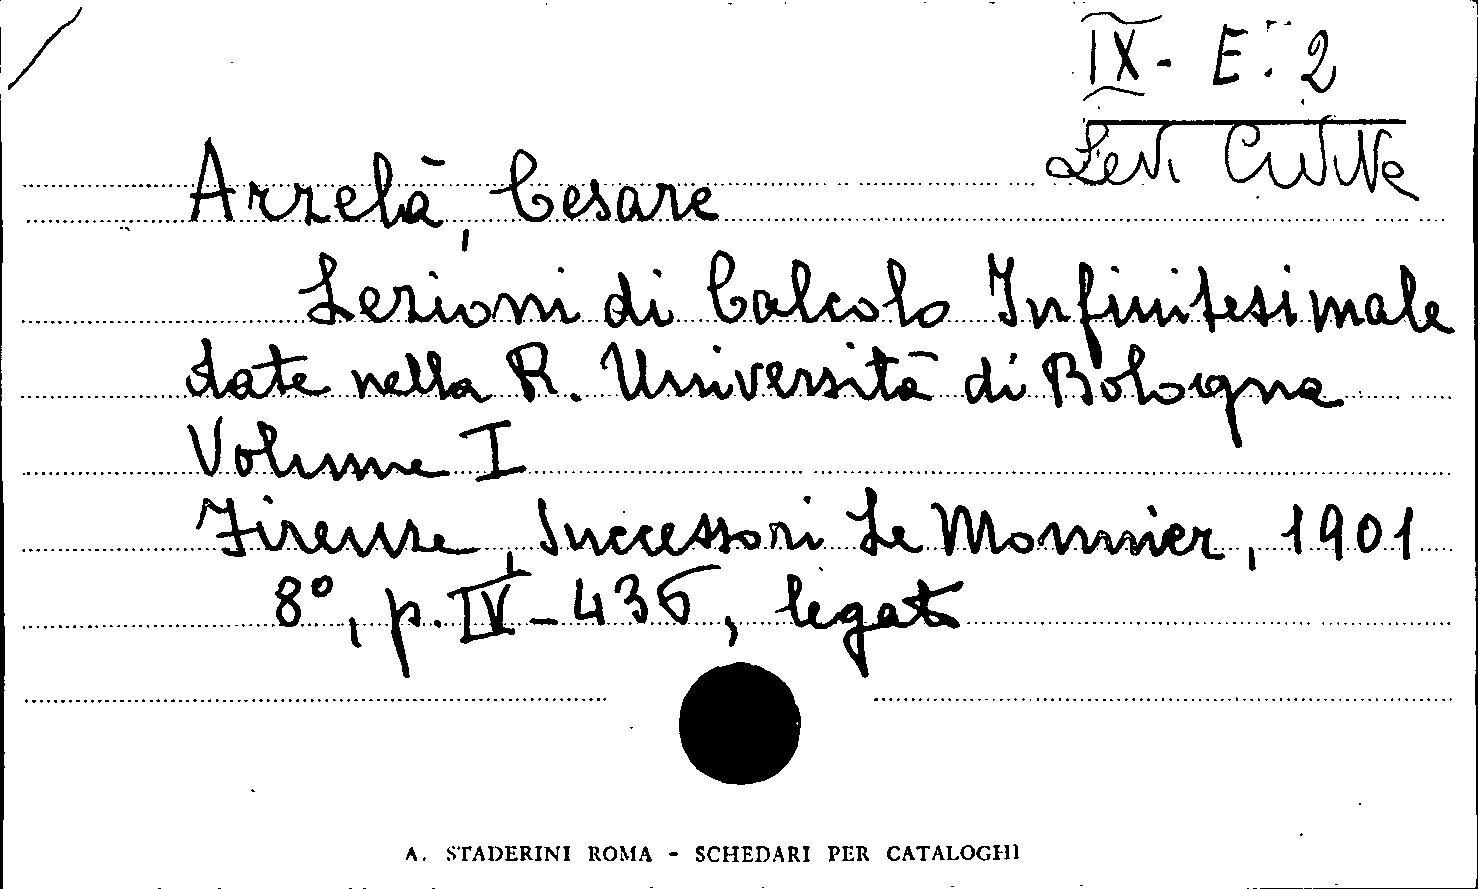 IX - E. 2
Levi Civita
Arzelà, Cesare
Lezioni di Calcolo Infinitesimale
date nella R. Università di Bologna
Volume I
Firenze, Successori Le Monnier, 1901
8°, p. IV - 436, legato
A. STADERINI ROMA - SCHEDARI PER CATALOGHI